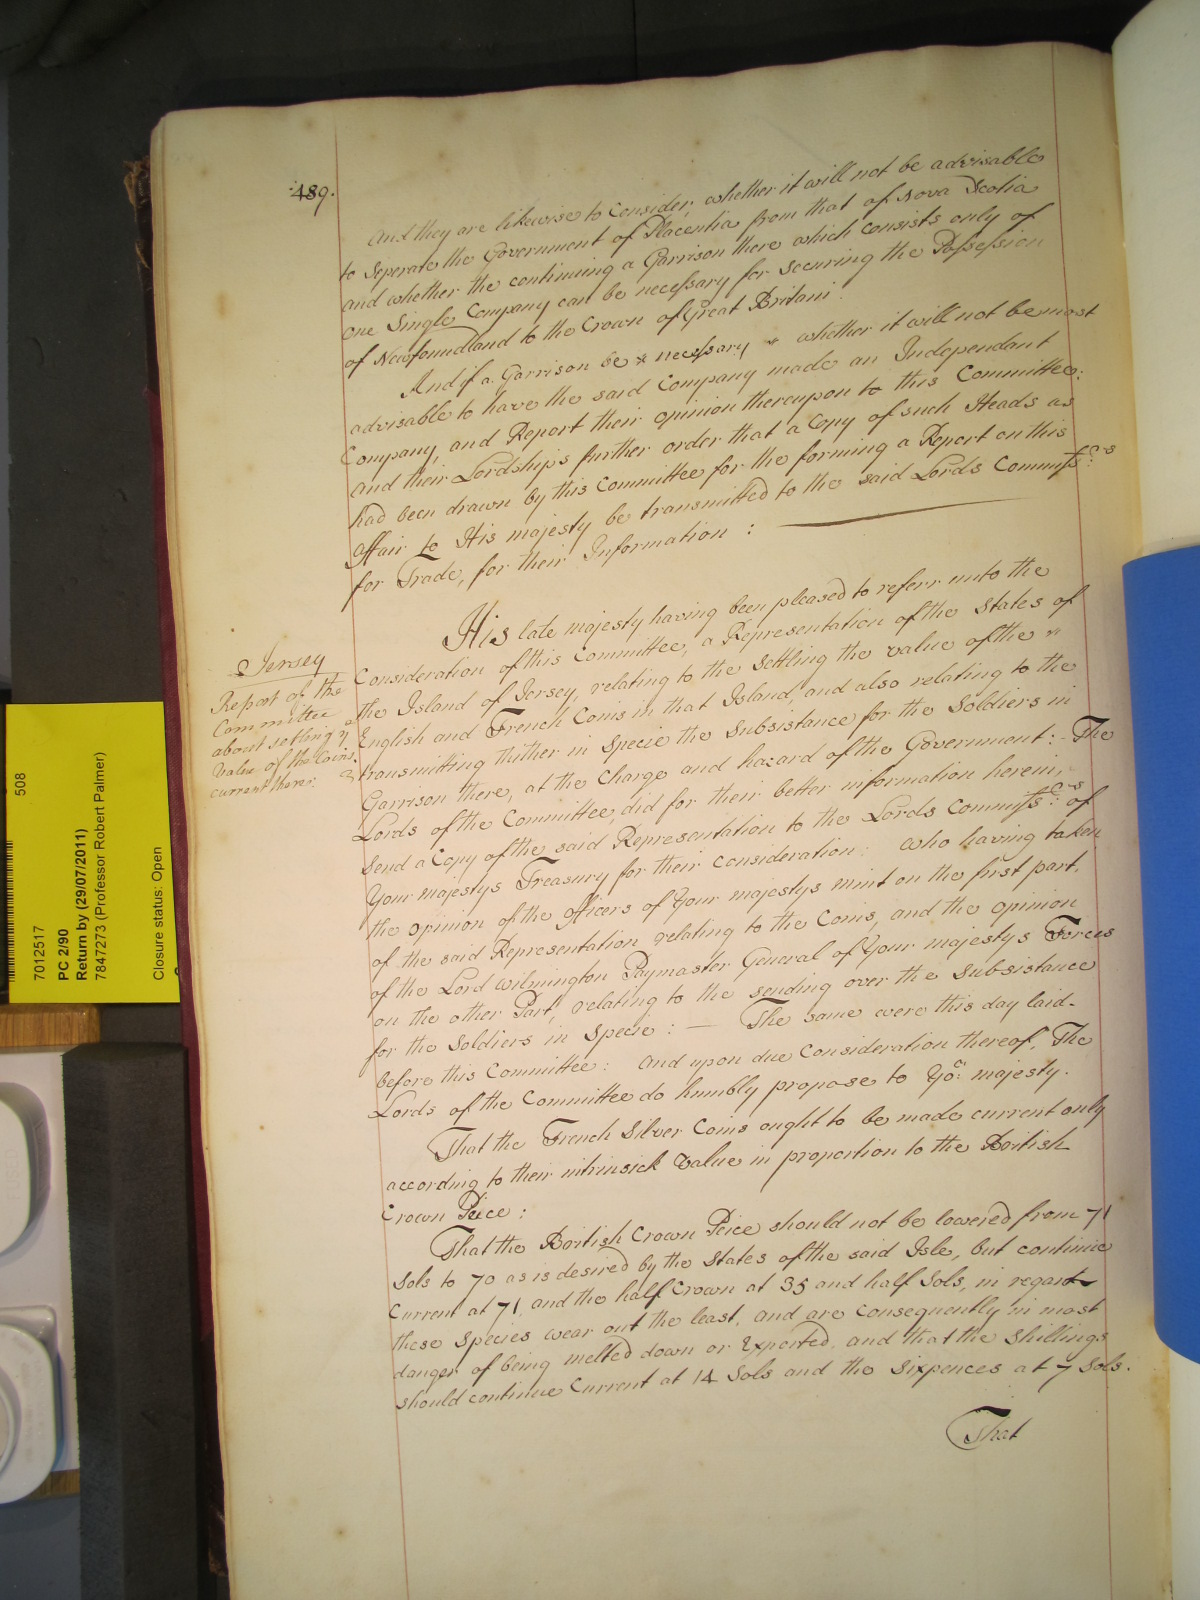 489.
And they are likewise to Consider, whether it will not be advisable
to Seperate the Government of Placentia from that of Nova Scotia
and whether the continuing a Garrison there which consists only of
one Single Company can be necessary for Securing the Possession
of Newfoundland to the Crown of Great Britani.
And if a Garrison be necessary whether it will not be most
advisable to have the said Company made an Independant
Company, and Report their opinion thereupon to this Committee:
and their Lordships further order that a Copy of such Heads as
had been drawn by this Committee for the forming a Report on this
Affair to His Majesty be transmitted to the said Lords Commissrs
for Trade, for their Information :
Jersey
Report of the
Committee
about setling ye
Value of the Coins
current there:
His late Majesty having been pleased to referr unto the
Consideration of this Committee, a Representation of the States of
the Island of Jersey, relating to the Settling the value of the
English and French Coins in that Island, and also relating to the
transmitting thither in Specie the Subsistance for the Soldiers in
Garrison there, at the Charge and hazard of the Government: The
Lords of the Committee, did for their better information herein,
Send a Copy of the said Representation to the Lords Commissrs of
Your Majestys Treasury for their Consideration: who having taken
the opinion of the Officers of Your Majestys Mint on the first part.
of the said Representation relating to the Coins, and the opinion
of the Lord Wilmington Paymaster General of Your Majestys Forces
on the other Part, relating to the sending over the Subsistance
for the Soldiers in Specie : — The same were this day laid
before this Committee: And upon due Consideration thereof, The
Lords of the Committee do humbly propose to Yor Majesty.
That the French Silver Coins ought to be made current only
according to their intrinsick Value in proportion to the British
Crown Peice :
That the British Crown Peice should not be lowered from 71
Sols to 70 as is desired by the States of the said Isle, but continue
Current at 71, and the half Crown at 35 and half Sols, in regard
these Species wear out the least, and are consequently in most
danger of being melted down or Exported, and that the Shillings
should continue Current at 14 Sols and the Sixpences at 7 Sols.
That
508
7012517
PC 2/90
Return by (29/07/2011)
7847273 (Professor Robert Palmer)
Closure status: Open